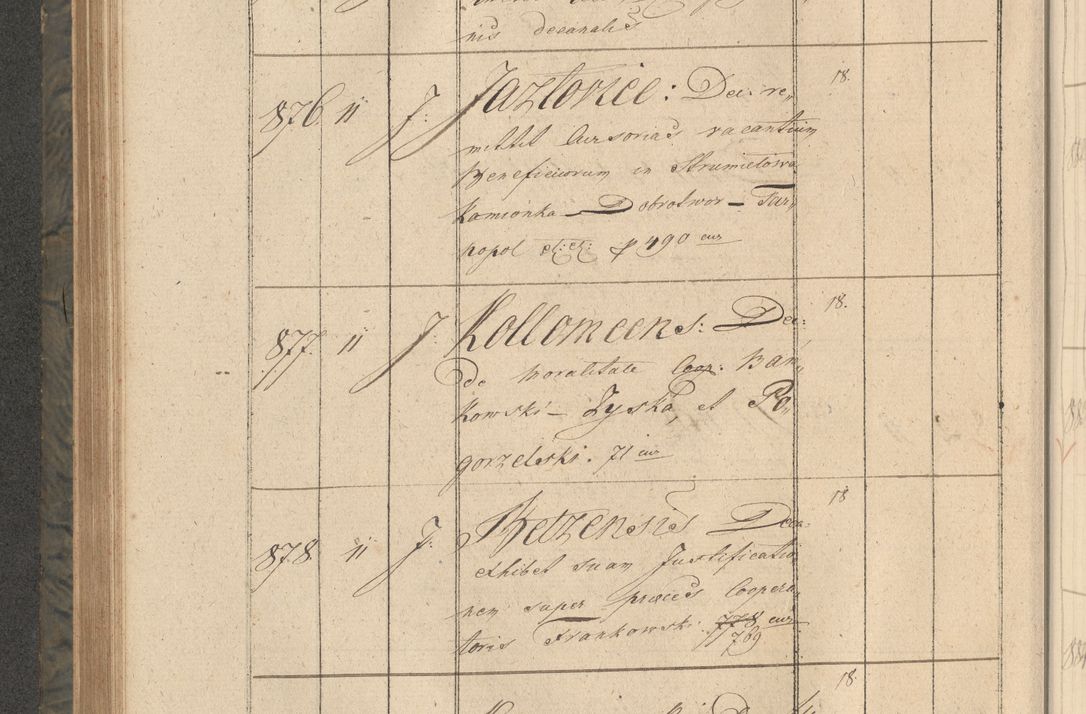 nis decanalis
876. 11 J: Jazlovice: Dec: re, 18.
mittit Cursorias vacantium
Beneficiorum in Strumielowa
Kamionka — Dobrotwor — Tar,
nopol et: et: p 490 cur
877. 11 J: Kollomeens: Dec: 18.
de moralitate Coop: Ban,
kowski — Zyska, et Po,
gorzelski. 71 cur
878 11 J: Betzensis Deca: 18
exhibet suam Justificatio
nem super preces Coopera,
toris Frankowski 778 cur
769
18.